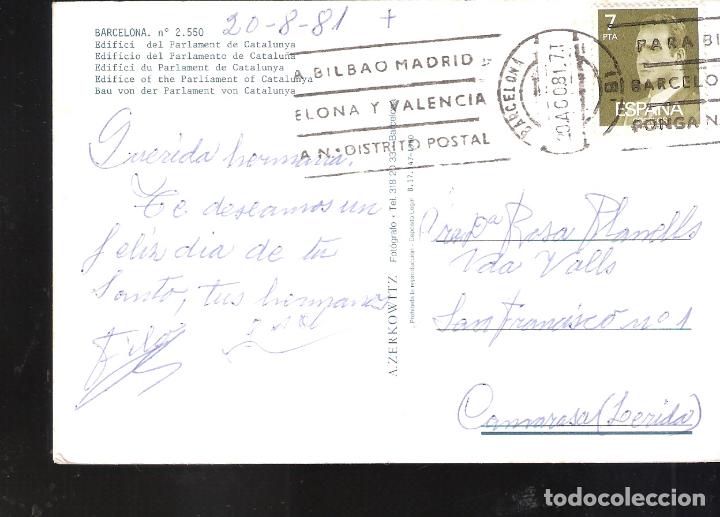 BARCELONA. nº 2.550
20-8-81 +
Edifici del Parlament de Catalunya
Edificio del Parlamento de Cataluña
Edifici du Parlament de Catalunya
Edifice of the Parliament of Catalunya
Bau von der Parlament von Catalunya
A BILBAO MADRID
ELONA Y VALENCIA
A N.º DISTRITO POSTAL
BARCELONA
20 AGO 81
7
PTA
ESPAÑA
PARA BI
BARCELO
PONGA N
Querida hermana.
Te deseamos un
feliz dia de tu
Santo, tus hermanos
A. ZERKOWITZ Fotógrafo • Tel. 318 20 33 Barcelona
Prohibida la reproducción - Depósito Legal B. 17.
Sra. Dª Rosa Planells
Vda Valls
San Francisco nº 1
Camarasa (Lerida)
todocoleccion